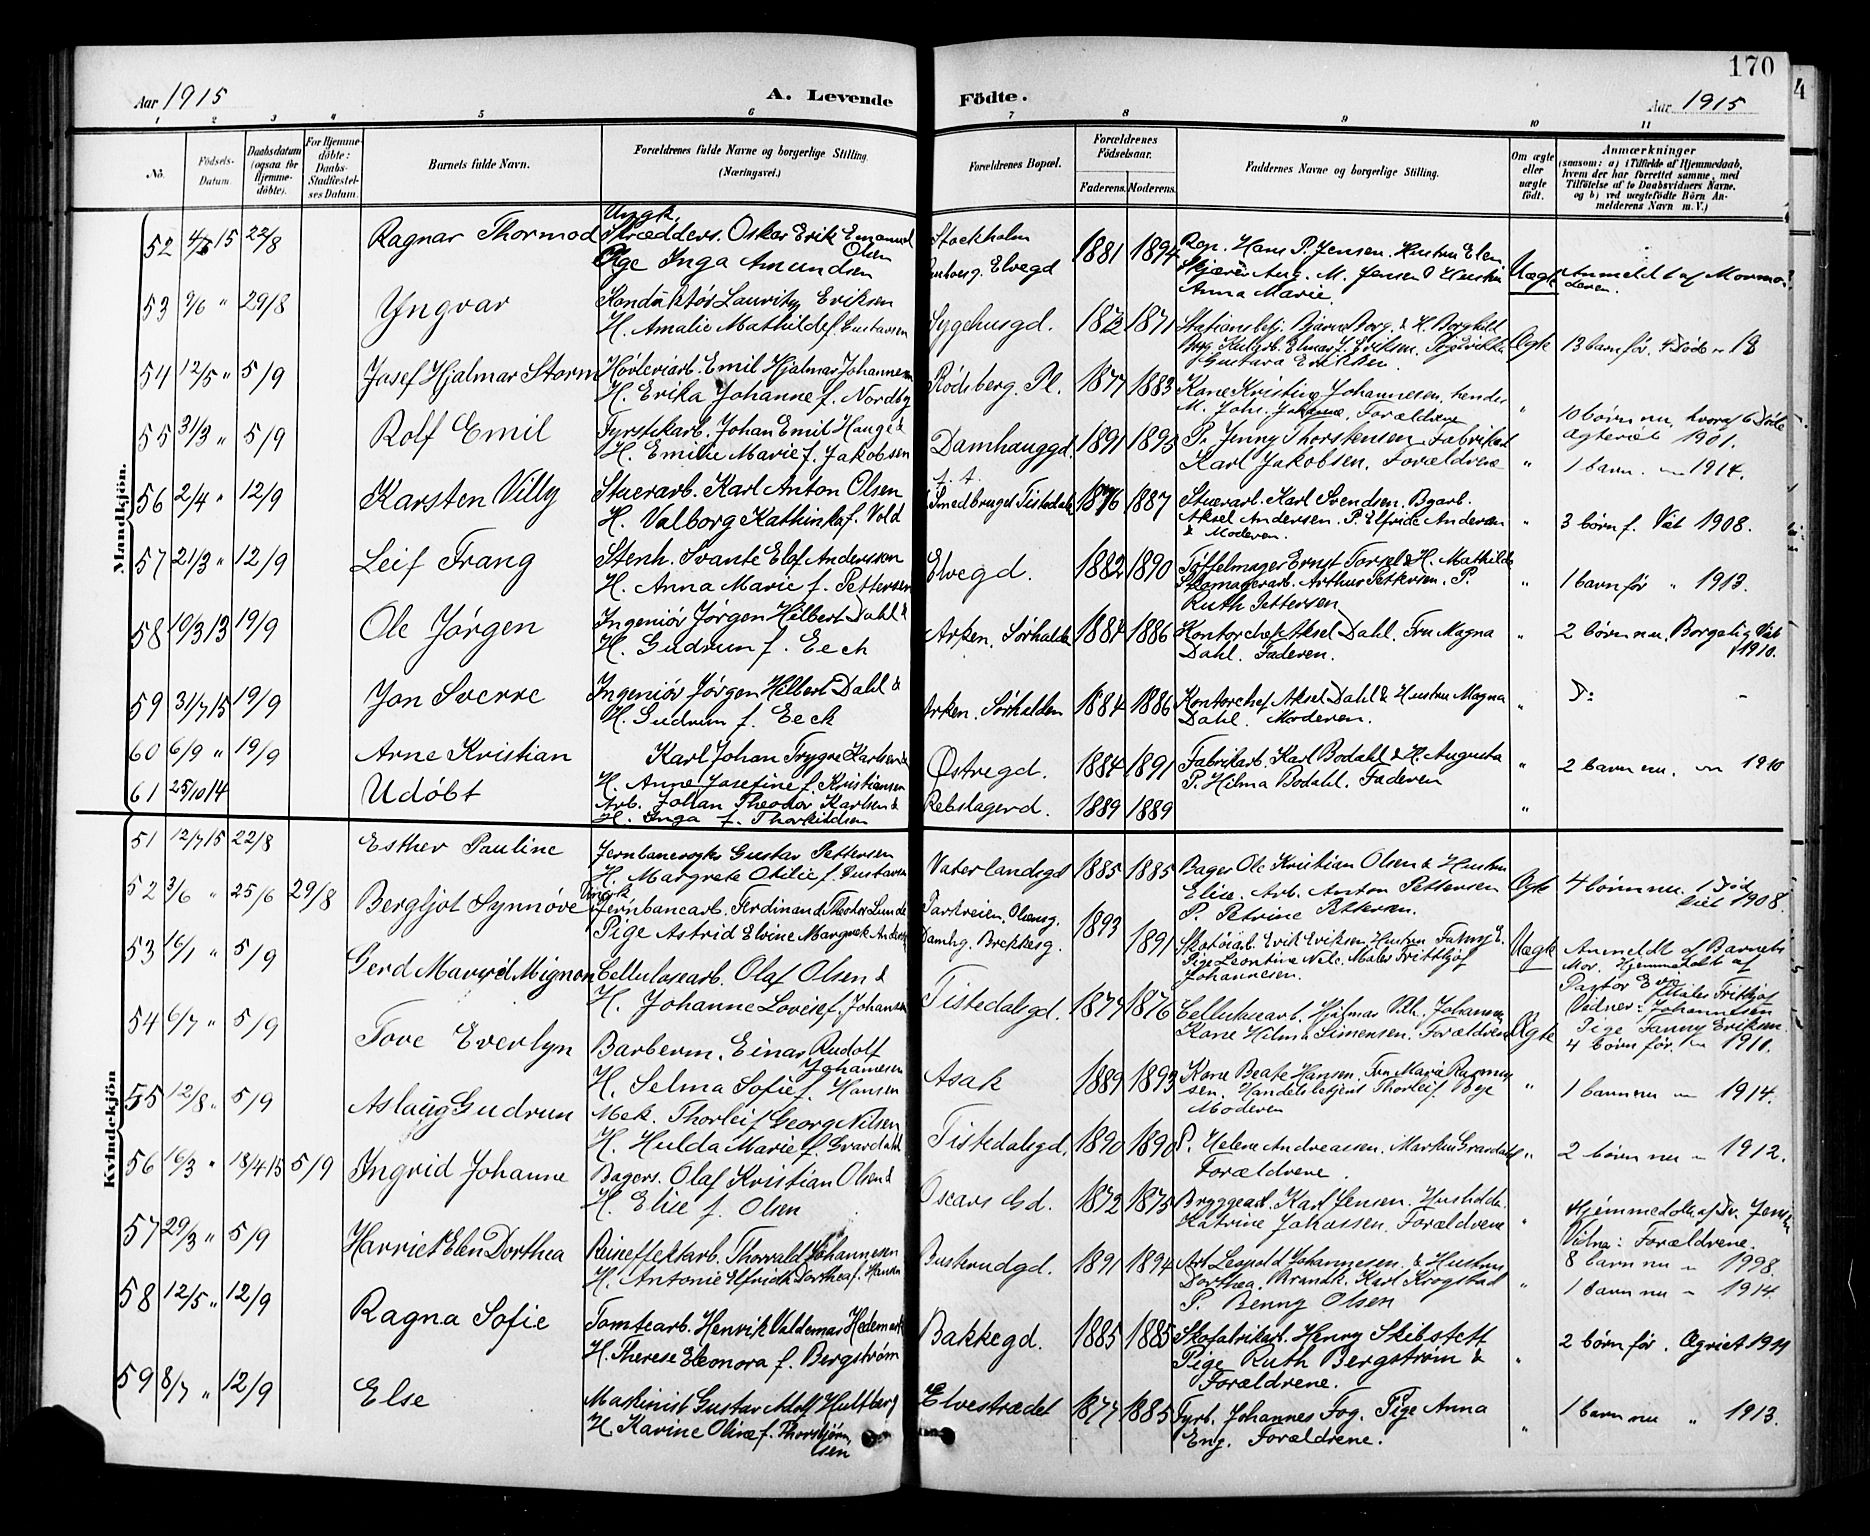 170
Aar 1915
A. Levende
Födte.
Aar 1915
1 2 3 4 5 6 7 8 9 10 11
No.
Födsels-Datum.
Daabsdatum (ogsaa for Hjemme-döbte).
For Hjemme-döbte: Daabs-Stadfæstel-ses Datum.
Barnets fulde Navn.
Forældrenes fulde Navne og borgerlige Stilling. (Næringsvei.)
Forældrenes Bopæl.
Forældrenes Födselsaar.
Faderens. Moderens.
Faddernes Navne og borgerlige Stilling.
Om ægte eller uægte födt.
Anmærkninger
(saasom: a) i Tilfælde af Hjemmedaab, hvem der har forrettet samme, med Tilföielse af to Daabsvidners Navne, og b) ved uægtefödte Börn An-melderens Navn m. V.)
Mandkjön.
52 15 22/8 Ragnar Thormod
Ungk.
Skrædders. Oskar Erik Emanuel Olsen
Pige Inga Amundsen
Stockholm
Elvegd
1881 1894
Rep. Hans P. Jensen. Hustru Elen
Aug. M. Jensen & Hustru
Anna Marie.
Uægte
Anmeldt af Mormo-
deren.
53 9/6 " 29/8 Yngvar
Konduktör Lauritz Eriksen
H. Amalie Mathilde f. Gustavsen
Sygehusgd. 1872 1871
Stationsbetj. Bjarne Borg & H. Borghild
Gustava Eriksen.
Ægte
13 barn før. 4 Död
54 12/5 " 5/9 Josef Hjalmar Storm
Høvleriarb. Emil Hjalmar Johannesen
H. Erika Johanne f. Nordby
Rödsberg. Pl. 1877 1883
Kone Kristine Johannesen, hendes
M. Joh. Forældrene
"
10 börn nu, hvoraf 6 Döde
Ægteviet 1901.
55 31/3 " 5/9 Rolf Emil
Fyrstikarb. Johan Emil Hauge &
H. Emilie Marie f. Jakobsen
Damhauggd. 1891 1893
P. Jenny Thorstensen. Fabrikarb
Karl Jakobsen. Forældrene
"
1 barn. 1914.
56 2/4 " 12/9 Karsten Villy
Stuerarb. Karl Anton Olsen
H. Valborg Kathinka f. Vold
Smedbruget Tistedalen 1876 1887
Stuerarb. Karl Svendsen. Bgarb.
Aksel Andersen. P. Elfride Andersen
& Moderen.
"
3 börn f. Viet 1908.
57 21/3 " 12/9 Leif Frang
Stenh. Svante Elof Andersson
H. Anna Marie f. Pettersen
Elvegd. 1882 1890
Töffelmager Ernst Torsel & H. Mathilde
Skomagerarb. Arthur Pettersen. P.
Ruth Pettersen
"
1 barn för " 1913.
58 10/3 13 19/9 Ole Jörgen
Ingeniör Jörgen Hilbert Dahl &
H. Gudrun f. Eeck
Arken, Sörhalden 1884 1886
Kontorchef Aksel Dahl. Fru Magna
Dahl. Faderen.
"
2 börn nu. Borgelig Viet
1910.
59 31/7 15 19/9 Jon Sverre
Ingeniör Jörgen Hilbert Dahl &
H. Gudrun f. Eeck
Arken. Sörhalden 1884 1886
Kontorchef Aksel Dahl & Hustru Magna
Dahl. Moderen.
"
60 6/9 " 19/9 Arne Kristian
Karl Johan Trygve Karlsen &
H. Anne Josefine f. Kristiansen
Östregd. 1884 1891
Fabrikarb. Karl Bodahl & H. Augusta
P. Hilma Bodahl. Faderen
"
2 barn nu. 1910
61 25/10 14 Udöbt
Arb. Johan Theodor Karlsen &
H. Inga f. Thorkildsen
Rebslagerd. 1889 1889
"
Kvindekjön
51 12/7 15 22/8 Esther Pauline
Jernbanevogts Gustav Pettersen
H. Margrete Otilie f. Gustavsen
Vaterlandsgd 1885 1885
Bager Ole Kristian Olsen & Hustru
Elise. Arb. Anton Pettersen
P. Petrine Pettersen.
Ægte
4 börn nu. 1 Död
Viet 1908.
52 3/6 " 25/6 29/8 Bergljot Synnöve
Ungk.
Jernbanearb. Ferdinand Theodor Lunde
Pige Astrid Elvine Margrete
Damhg. Brekkerg.
1893 1891
Skotöiarb. Erik Eriksen. Hustru Fanny E.
Pige Leontine Maler Frithjof
Johannesen.
Uægte
Anmeldt af Barnets
Mor. Hjemmedöbt af
Pastor
Vidner: Maler Frithjof Johannesen
Pige Fanny Eriksen
53 16/1 " 5/9 Gerd Mignon
Cellulosearb. Olaf Olsen &
H. Johanne Lovise f. Johansen
Tistedalsgd. 1877 1876
Cellulosearb. Hjalmar Vilh. Johansen
Kone Hilma Simensen. Forældrene
Ægte
4 börn för. 1910.
54 6/7 " 5/9 Tove Everlyn
Barberm. Einar Rudolf Johannesen
H. Selma Sofie f. Hansen
Asak 1889 1893
Kone Beate Hansen, Fru Marie Rasmus-
sen. Handelsbetjent Thorleif Bye
Moderen
"
1 barn nu 1914.
55 12/8 " 5/9 Aslaug Gudrun
Mek. Thorleif Georg Nilsen
H. Hulda Marie f. Gravdahl
Tistedalsgd. 1890 1890
P. Helene Andreassen. Martin Gravdahl
Forældrene
"
2 börn nu 1912.
56 16/3 " 18/4 15 5/9 Ingrid Johanne
Bagers. Olaf Kristian Olsen &
H. Elise f. Olsen
Oscars Gd. 1872 1875
Bryggeriarb. Karl Jensen. Hushold.
Katrine Johassen. Forældrene
"
Hjemmedöb af Dr. Jensen
Vidne: Forældrene.
8 barn nu 1998.
57 29/3 " 5/9 Harriet Elen Dorthea
Thorvald Johannesen
H. Antonie Elfride Dorthea f. Hansen
Buskrudgd. 1891 1894
Arb. Leopold Johannesen & Hustru
Dorthea. Brandk. Karl Krogstad
P. Benny Olsen
"
1 barn nu 1914.
58 12/5 " 12/9 Ragna Sofie
Tomtearb. Henrik Valdemar Hedemark
H. Therese Eleonora f. Bergström
Bakkegd. 1885 1885
Skofabrikarb. Henry Skibstett
Pige Ruth Bergström &
Forældrene.
"
2 börn för.
59 8/7 " 12/9 Else
Maskinist Gustav Adolf Hultberg
H. Karine Oline f. Thorbjörn
sen
Elvestrædet 1877 1885
Fyrb. Johannes Fog. Pige Anna
Eng. Forældrene.
"
1 barn nu " 1913.